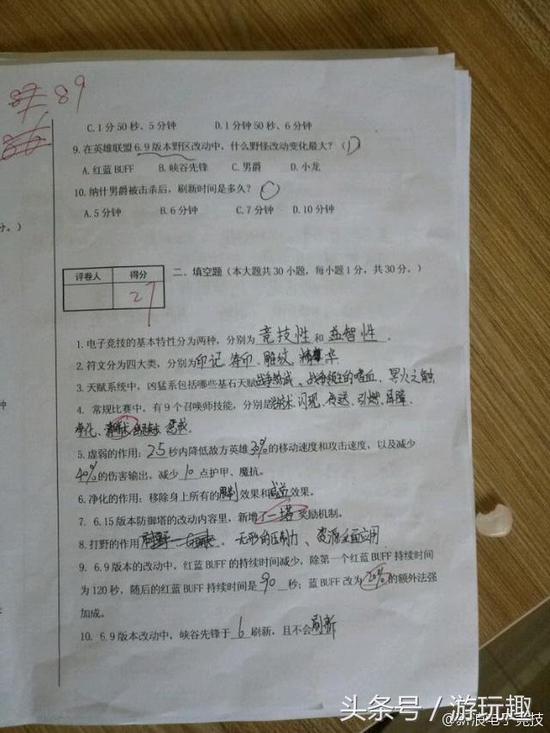 89
C.1分50秒、5分钟 D.1分钟50秒、6分钟
9.在英雄联盟6.9版本野区改动中,什么野怪改动变化最大?(D)
A.红蓝BUFF B.峡谷先锋 C.男爵 D.小龙
10.纳什男爵被击杀后,刷新时间是多久?
A.5分钟 B.6分钟 C.7分钟 D.10分钟
分。)
评卷人 得分
27
二、填空题(本大题共30小题,每小题1分,共30分。)
1.电子竞技的基本特性分为两种,分别为竞技性和益智性.
2.符文分为四大类,分别为印记、符印、雕纹、精华
3.天赋系统中,凶猛系包括哪些基石天赋战争热诚、战争领主的嗜血、死火之触
4.常规比赛中,有9个召唤师技能,分别是治疗术、闪现、传送、引燃、屏障、
净化、
5.虚弱的作用:2.5秒内降低敌方英雄30%的移动速度和攻击速度,以及减少
40%的伤害输出,减少10点护甲、魔抗。
6.净化的作用:移除身上所有的限制效果和减益效果。
7.6.15版本防御塔的改动内容里,新增了一塔奖励机制。
8.打野的作用 无形的压制力、资源全面应用
9.6.9版本的改动中,红蓝BUFF的持续时间减少,除第一个红蓝BUFF持续时间
为120秒,随后的红蓝BUFF持续时间是90秒;蓝BUFF改为 的额外法强
加成。
10.6.9版本改动中,峡谷先锋于6刷新,且不会刷新
钟
头条号/游玩趣
@新浪电子竞技